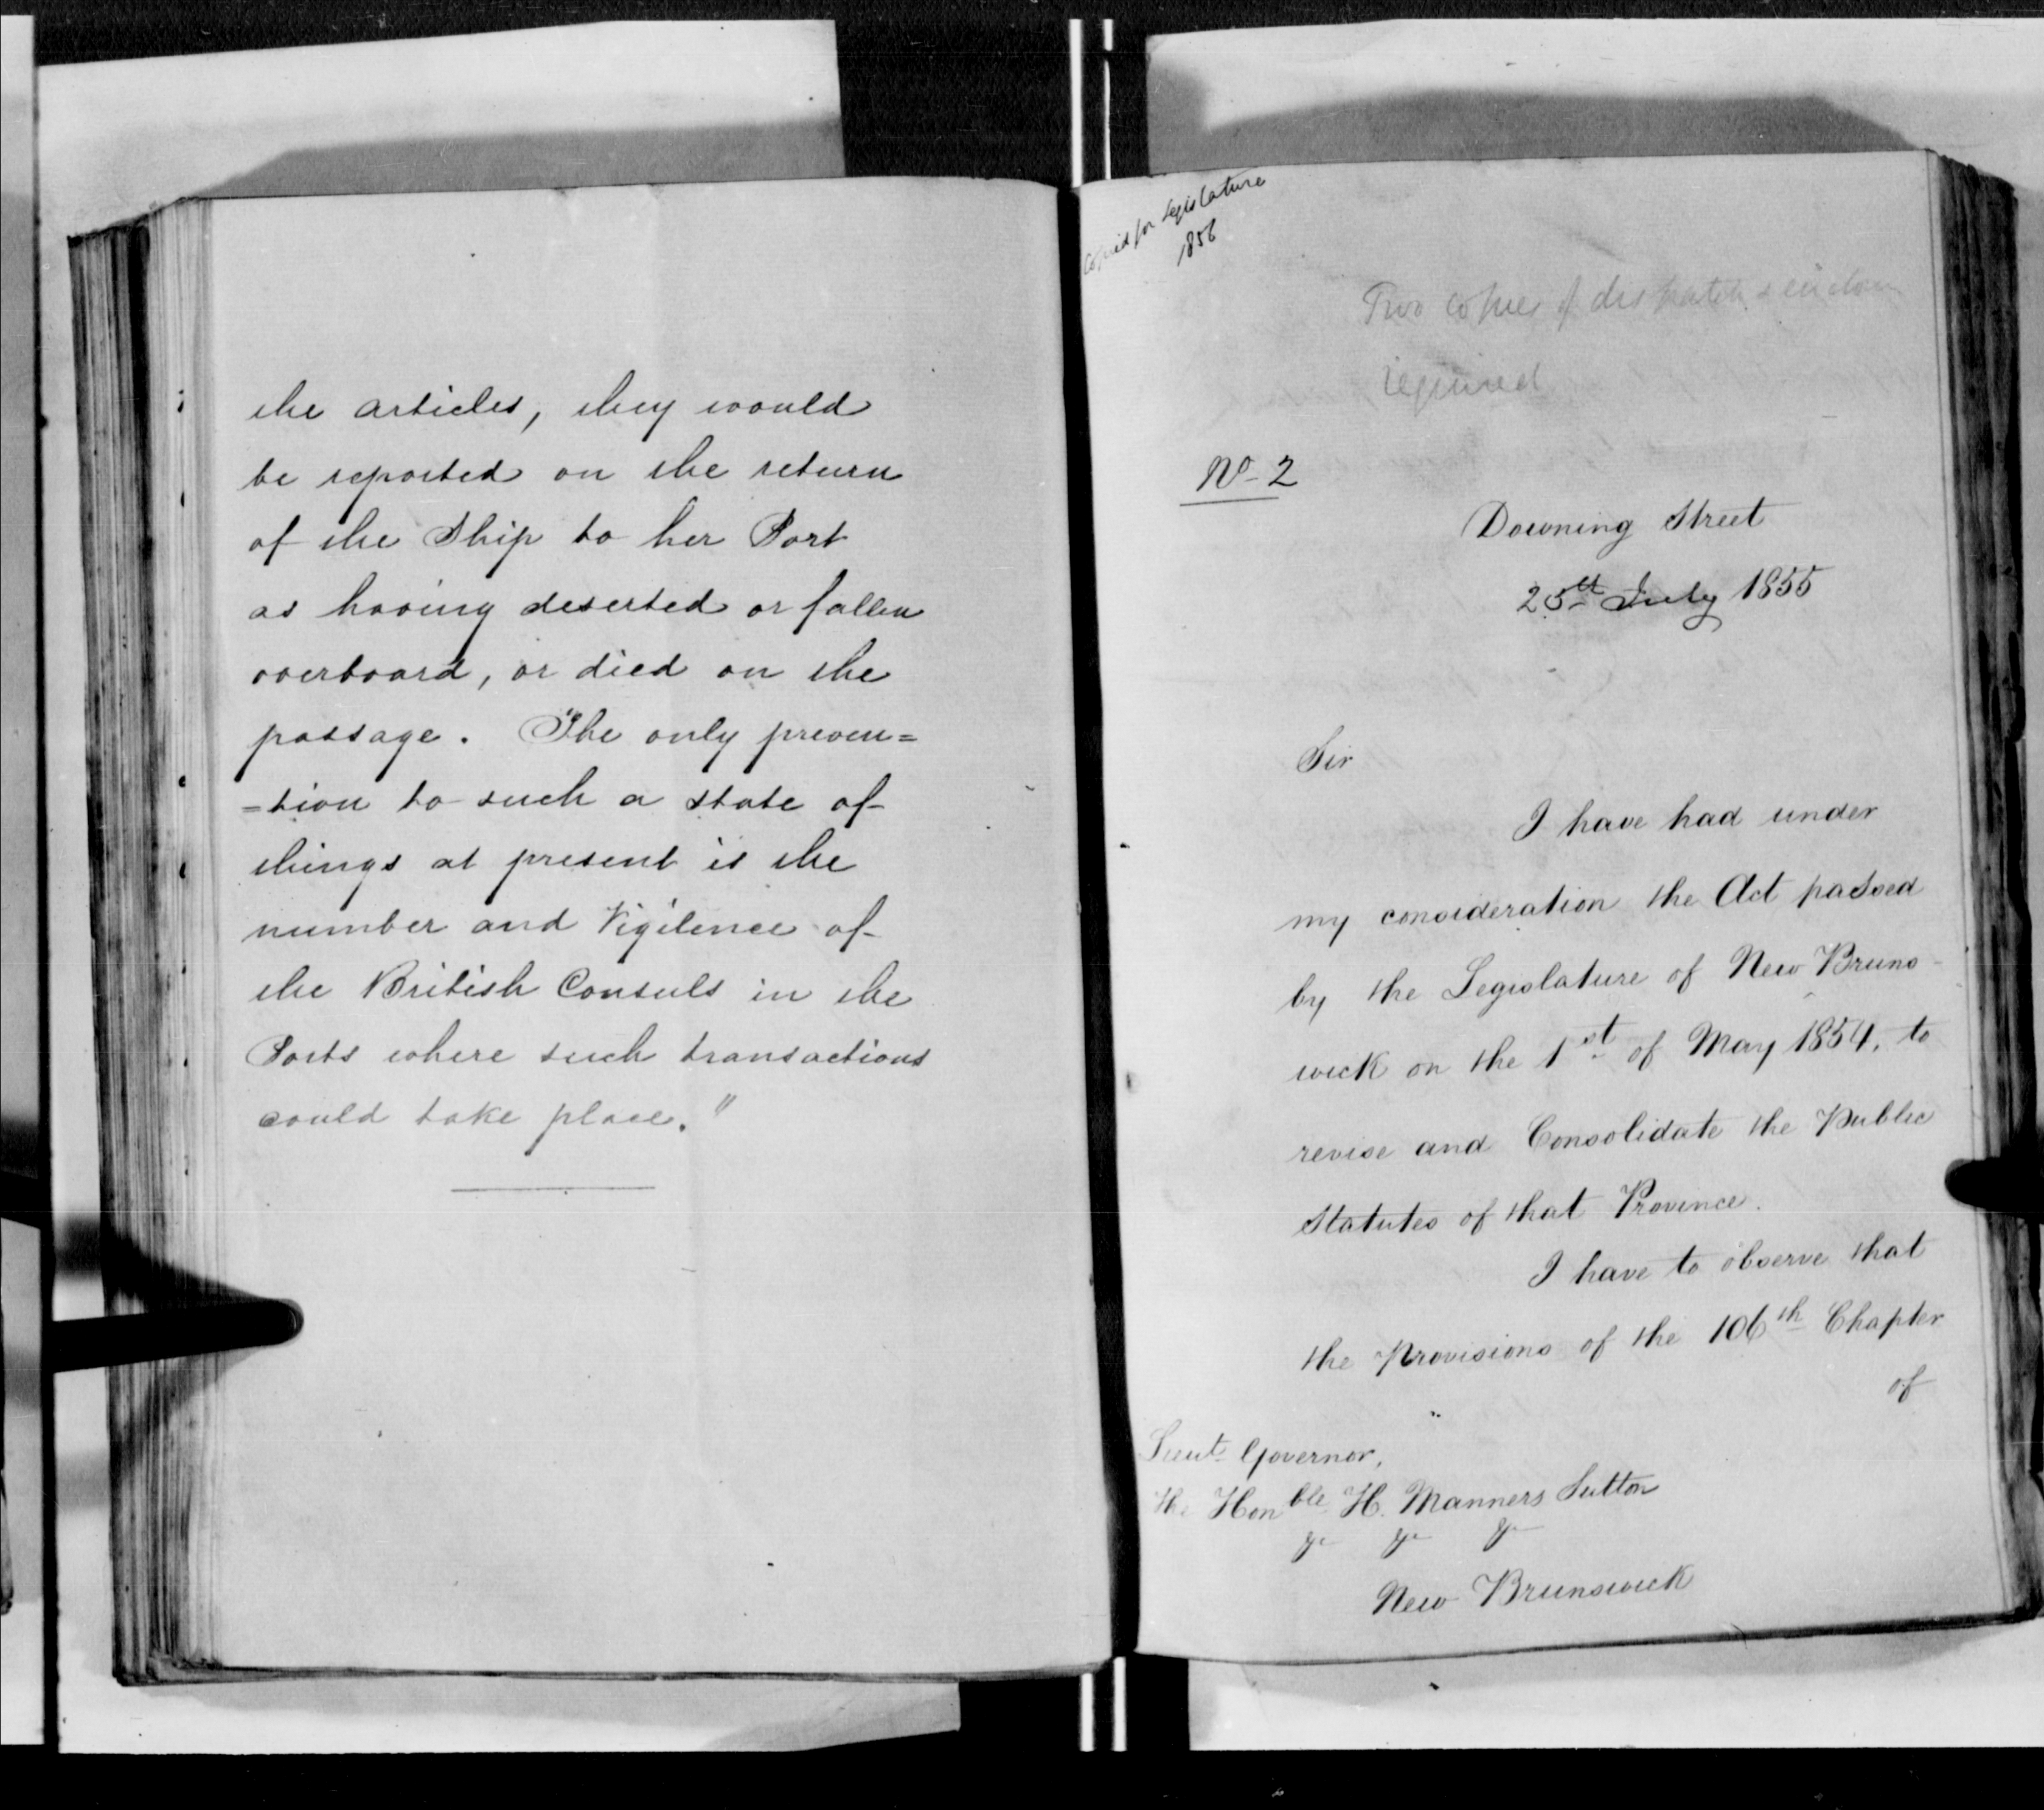 the articles, they would
be reported on the return
of the Ship to her Port
as having deserted or fallen
overboard, or died on the
passage. The only preven=
=tion to such a state of
things at present is the
number and Vigilence of
the British Consuls in the
Ports where such transactions
could take place."
Copied for Legislature
1856
Two copies of despatch &
required
No. 2
Downing Street
25th July 1855
Sir
I have had under
my consideration the Act passed
by the Legislature of New Bruns-
wick on the 1st of May 1854, to
revise and Consolidate the Public
Statutes of that Province.
I have to observe that
the Provisions of the 106th Chapter
of
Lieut. Governor,
The Honble. H. Manners Sutton
&c &c &c
New Brunswick